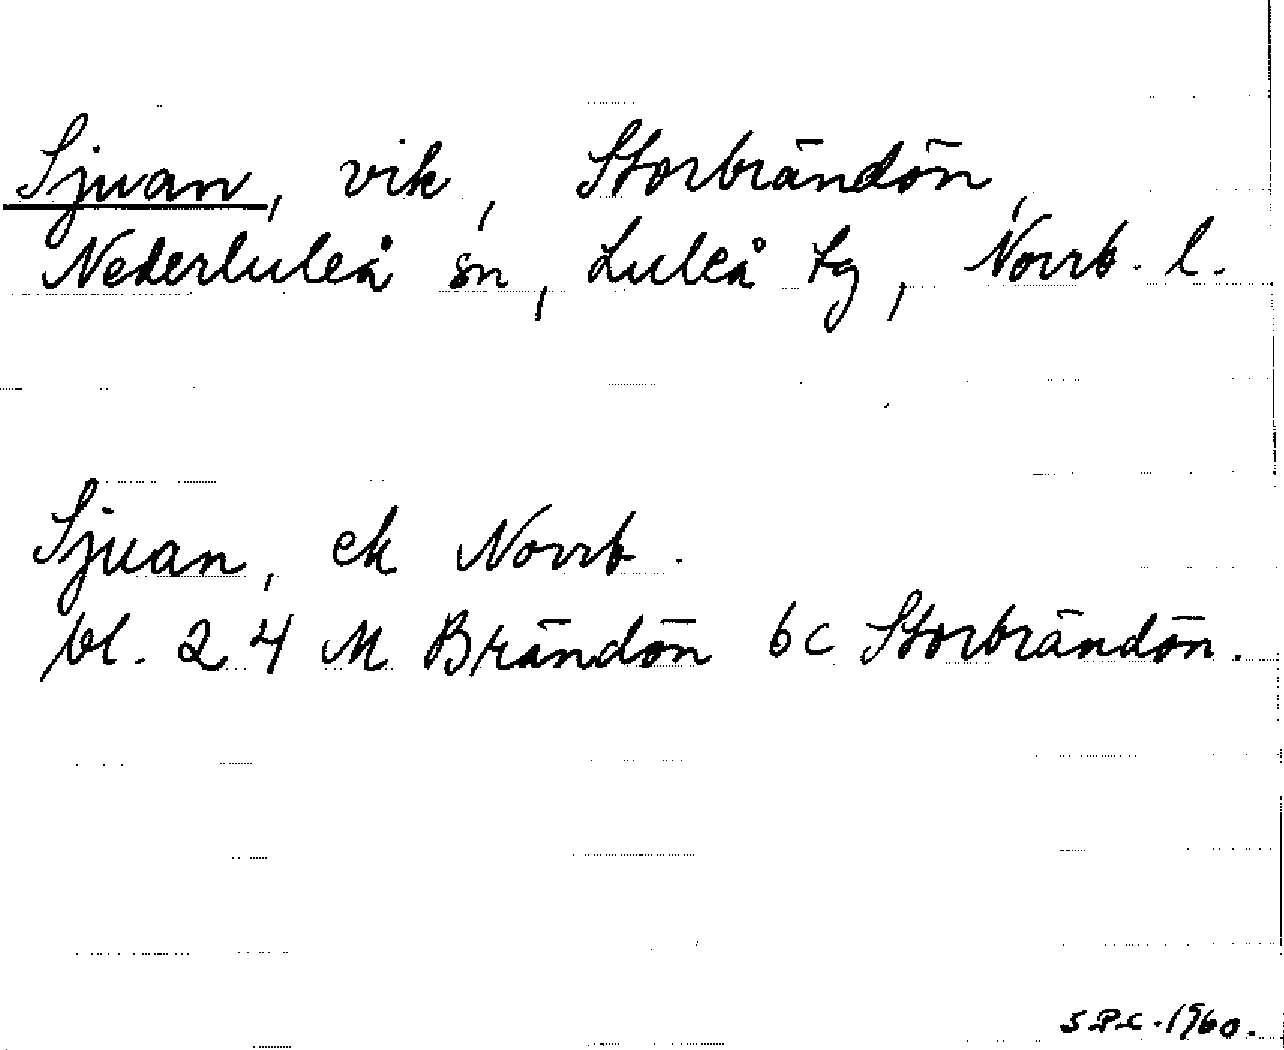 Sjuan, vik, Storbrändön,
Nederluleå sn, Luleå tg, Norrb. l.
Sjuan, ek Norrb.
bl. 24 M Brändön 6c Storbrändön.
S.P.C. 1960.